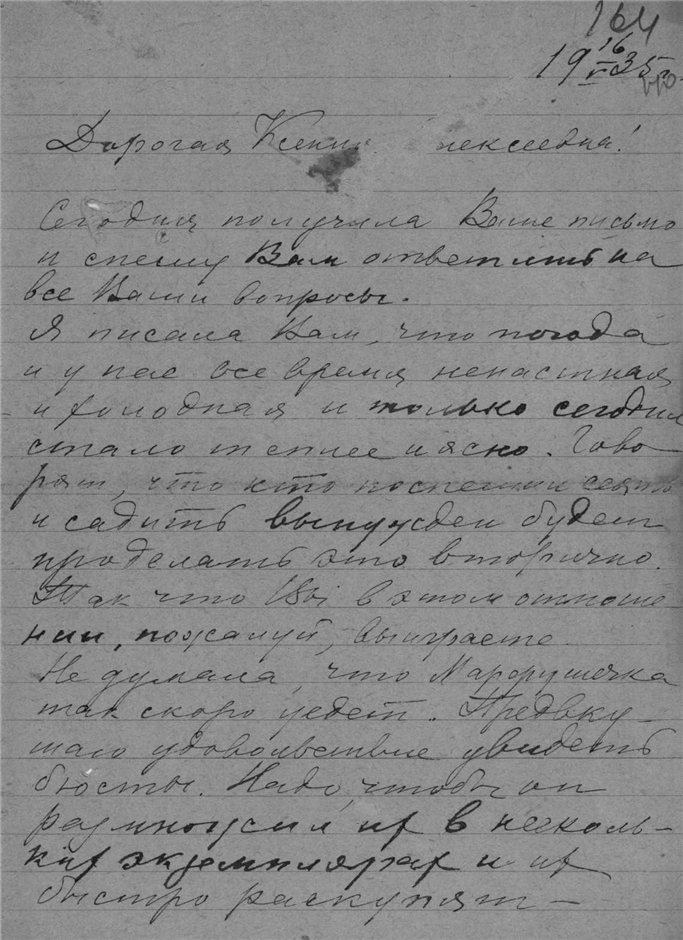 164
19 16/V 35 г.
Дорогая Ксени лексеевна!
Сегодня получила Ваше письмо
и спешу Вам ответить на
все Ваши вопросы.
Я писала Вам, что погода
и у нас все время ненастная
и холодная и только сегодня
стало теплее и ясно. Гово-
рят, что кто поспешил сеять
и садить вынужден будет
проделать это вторично.
Так что Вы в этом отноше
нии, пожалуй, выиграете.
Не думала, что Марфушечка
так скоро уедет. Предвку-
шаю удовольствие увидеть
бюсты. Надо, чтобы он
размножил их в несколь-
ких экземплярах и их
быстро раскупят –